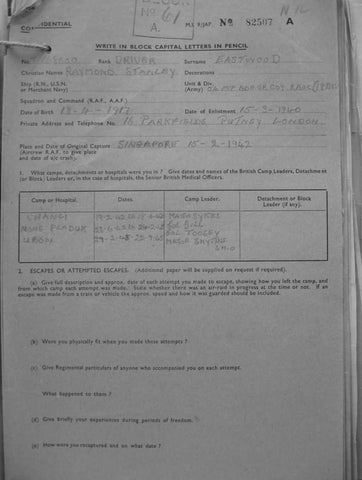 BLOCK
No 61
A.
CONFIDENTIAL
M.I. 9/JAP. No 82507 A
WRITE IN BLOCK CAPITAL LETTERS IN PENCIL
No. Rank DRIVER Surname EASTWOOD
Christian Names RAYMOND STANLEY Decorations
Ship (R.N., U.S.N. or Merchant Navy) Unit & Div. (Army)
Squadron and Command (R.A.F., A.A.F.)
Date of Birth 18-4-1917 Date of Enlistment 15-3-1940
Private Address and Telephone No. 16 PARKFIELDS PUTNEY LONDON
Place and Date of Original Capture SINGAPORE 15-2-1942
(Aircrew R.A.F. to give place
and date of a/c crash).
1. What camps, detachments or hospitals were you in? Give dates and names of the British Camp Leaders, Detachment
(or Block) Leaders or, in case of hospitals, the Senior British Medical Officers.
Camp or Hospital. Dates. Camp Leader. Detachment or Block Leader (if any).
CHANGI MAJOR SYKES
NONG PLADUK
UBON COL TOOSEY
2. ESCAPES OR ATTEMPTED ESCAPES. (Additional paper will be supplied on request if required).
(a) Give full description and approx. date of each attempt you made to escape, showing how you left the camp, and
from which camp each attempt was made. State whether there was an air-raid in progress at the time or not. If an
escape was made from a train or vehicle the approx. speed and how it was guarded should be included.
(b) Were you physically fit when you made these attempts?
(c) Give Regimental particulars of anyone who accompanied you on each attempt.
What happened to them?
(d) Give briefly your experiences during periods of freedom.
(e) How were you recaptured and on what date?